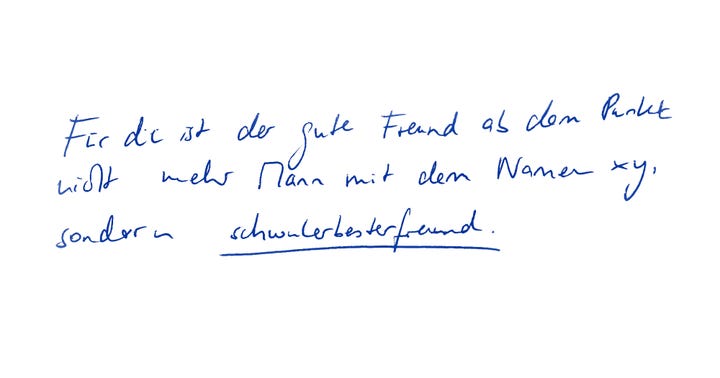 Für die ist der gute Freund ab dem Punkt
nicht mehr Mann mit dem Namen xy,
sondern schwulerbesterfreund.